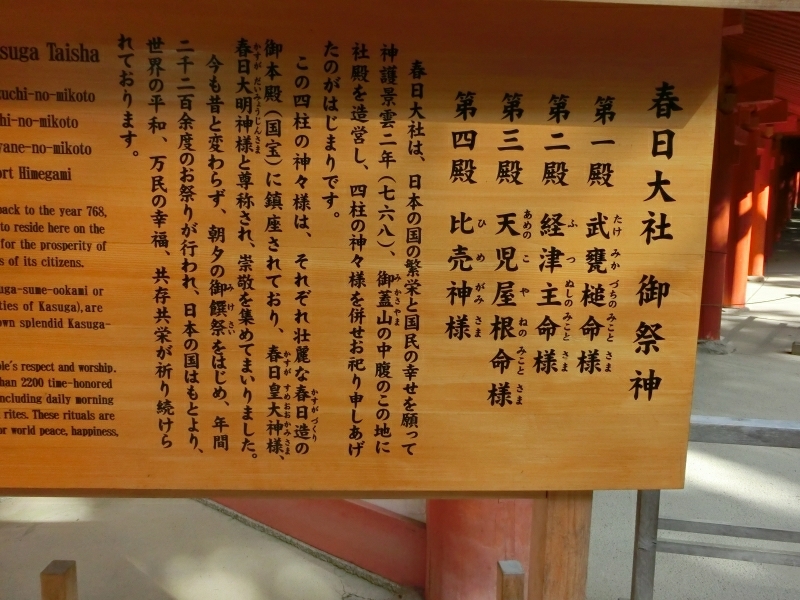 春日大社 御祭神
第一殿 武甕槌命様
第二殿 経津主命様
第三殿 天児屋根命様
第四殿 比売神様
春日大社は、日本の国の繁栄と国民の幸せを願って
神護景雲二年（七六八）、御蓋山の中腹のこの地に
社殿を造営し、四柱の神々様を併せお祀り申しあげ
たのがはじまりです。
この四柱の神々様は、それぞれ壮麗な春日造の
御本殿（国宝）に鎮座されており、春日皇大神様、
春日大明神様と尊称され、崇敬を集めてまいりました。
今も昔と変わらず、朝夕の御饌祭をはじめ、年間
二千二百余度のお祭りが行われ、日本の国はもとより、
世界の平和、万民の幸福、共存共栄が祈り続けら
れております。
suga Taisha
zuchi-no-mikoto
hi-no-mikoto
yane-no-mikoto
ort Himegami
back to the year 768,
to reside here on the
for the prosperity of
s of its citizens.
uga-sume-ookami or
ties of Kasuga), are
own splendid Kasuga-
ple's respect and worship.
han 2200 time-honored
including daily morning
rites. These rituals are
or world peace, happiness,